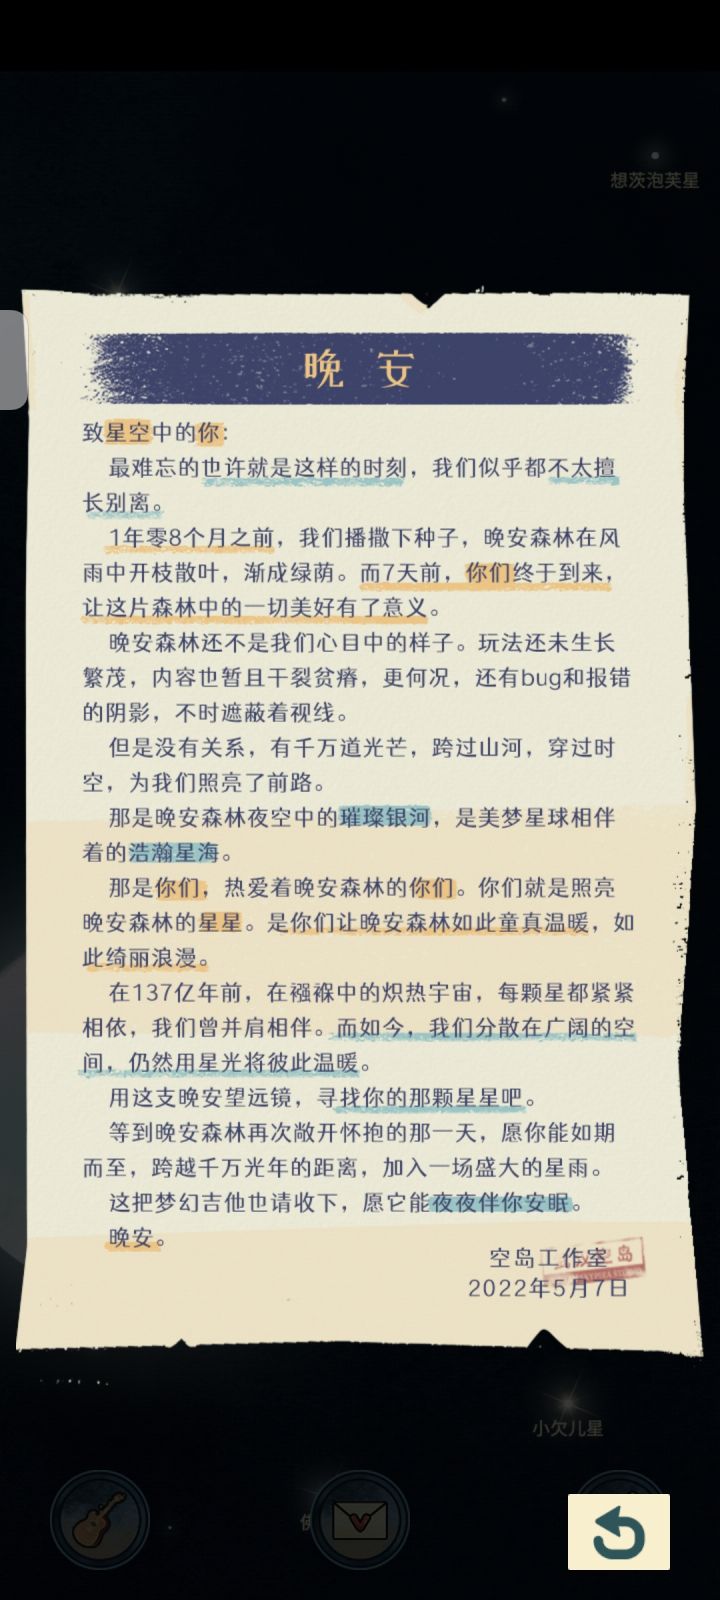 想茨泡芙星
晚 安
致星空中的你:
最难忘的也许就是这样的时刻，我们似乎都不太擅
长别离。
1年零8个月之前，我们播撒下种子，晚安森林在风
雨中开枝散叶，渐成绿荫。而7天前，你们终于到来，
让这片森林中的一切美好有了意义。
晚安森林还不是我们心目中的样子。玩法还未生长
繁茂，内容也暂且干裂贫瘠，更何况，还有bug和报错
的阴影，不时遮蔽着视线。
但是没有关系，有千万道光芒，跨过山河，穿过时
空，为我们照亮了前路。
那是晚安森林夜空中的璀璨银河，是美梦星球相伴
着的浩瀚星海。
那是你们，热爱着晚安森林的你们。你们就是照亮
晚安森林的星星。是你们让晚安森林如此童真温暖，如
此绮丽浪漫。
在137亿年前，在襁褓中的炽热宇宙，每颗星都紧紧
相依，我们曾并肩相伴。而如今，我们分散在广阔的空
间，仍然用星光将彼此温暖。
用这支晚安望远镜，寻找你的那颗星星吧。
等到晚安森林再次敞开怀抱的那一天，愿你能如期
而至，跨越千万光年的距离，加入一场盛大的星雨。
这把梦幻吉他也请收下，愿它能夜夜伴你安眠。
晚安。
空岛工作室
2022年5月7日
小欠儿星